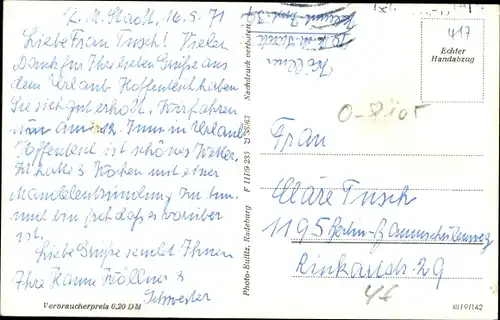 K. M. Stadt, 16.5.71
Liebe Frau Tusch! Vielen
Dank für Ihre lieben Grüße aus
dem Urlaub. Hoffentlich haben
Sie sich gut erholt. Wir fahren
nun am 12. Juni in Urlaub
Hoffentlich ist schönes Wetter.
2 Wochen mit einer
Mandelentzündung zu tun.
und bin froh daß es vorüber
ist.
Liebe Grüße sendet Ihnen
Ihre Hanne Köllner &
Schwester
Verbraucherpreis 0,20 DM
Photo-Bulitz, Radeburg F 111/9 235 J 36/63 Nachdruck verboten
Köllner
417
Echter
Handabzug
Frau
Cläre Tusch
1195 Berlin-Baumschulenweg
29
III/9/142